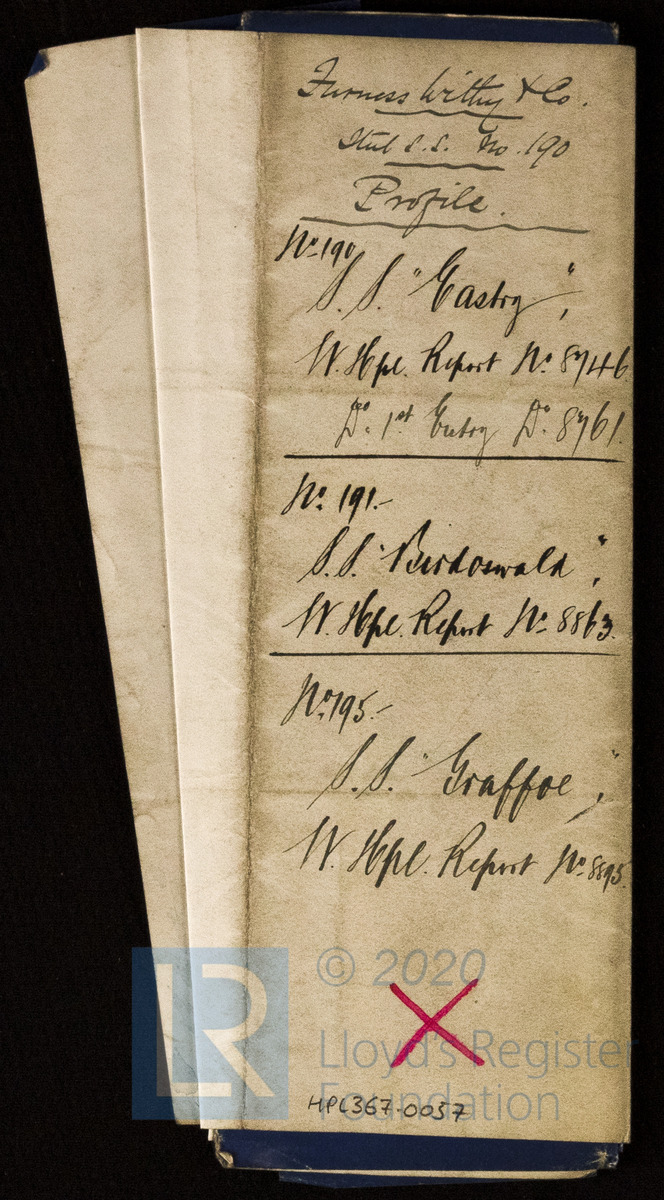 Furness Withy & Co.
Stul S.S. No. 190
Profile.
No. 190
S.S. "Eastry",
W. Hpl. Report No. 8746
Do. 1st Entry Do. 8761.
No. 191.-
S.S. "Birdoswald",
W. Hpl. Report No. 8863.
No. 195.-
S.S. "Graffoe",
W. Hpl. Report No. 8895.
LR
© 2020
Lloyd's Register
Foundation
HPL367-0057